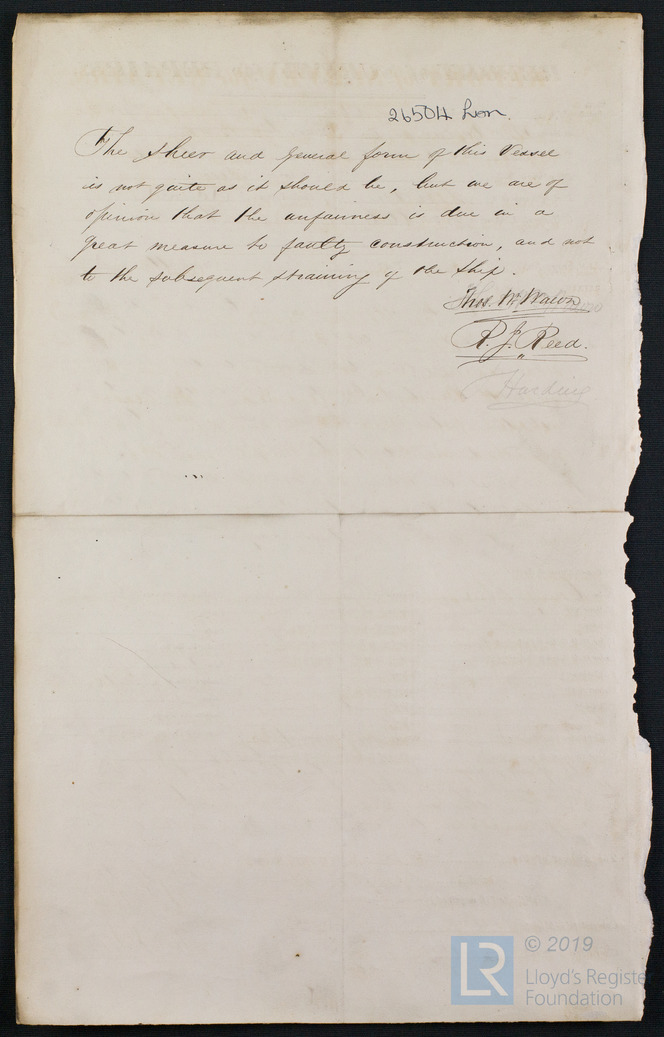 26504 Lon.
The sheer and general form of this Vessel
is not quite as it should be, but we are of
opinion that the unfairness is due in a
great measure to faulty construction, and not
to the subsequent straining of the Ship.
Thos. W. Wawn
R. J. Reed.
Harding
LR
© 2019
Lloyd's Register
Foundation